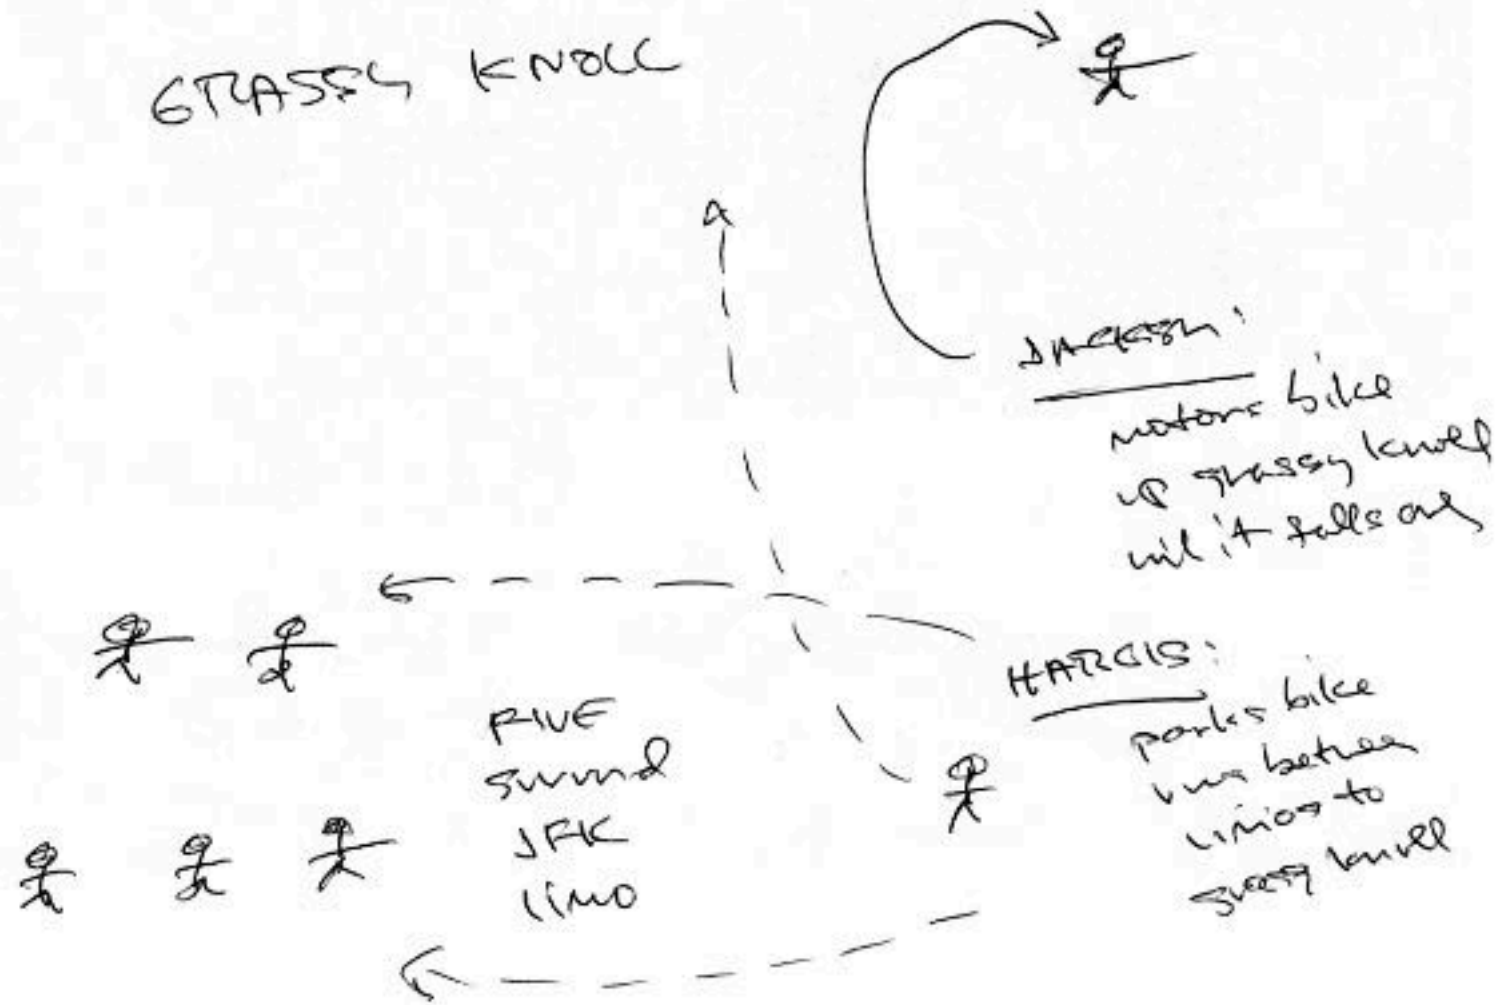 GRASSY KNOLL
JACKSON:
motors bike
up grassy knoll
until it falls over
HARGIS:
parks bike
runs between
limos to
grassy knoll
FIVE
surround
JFK
limo